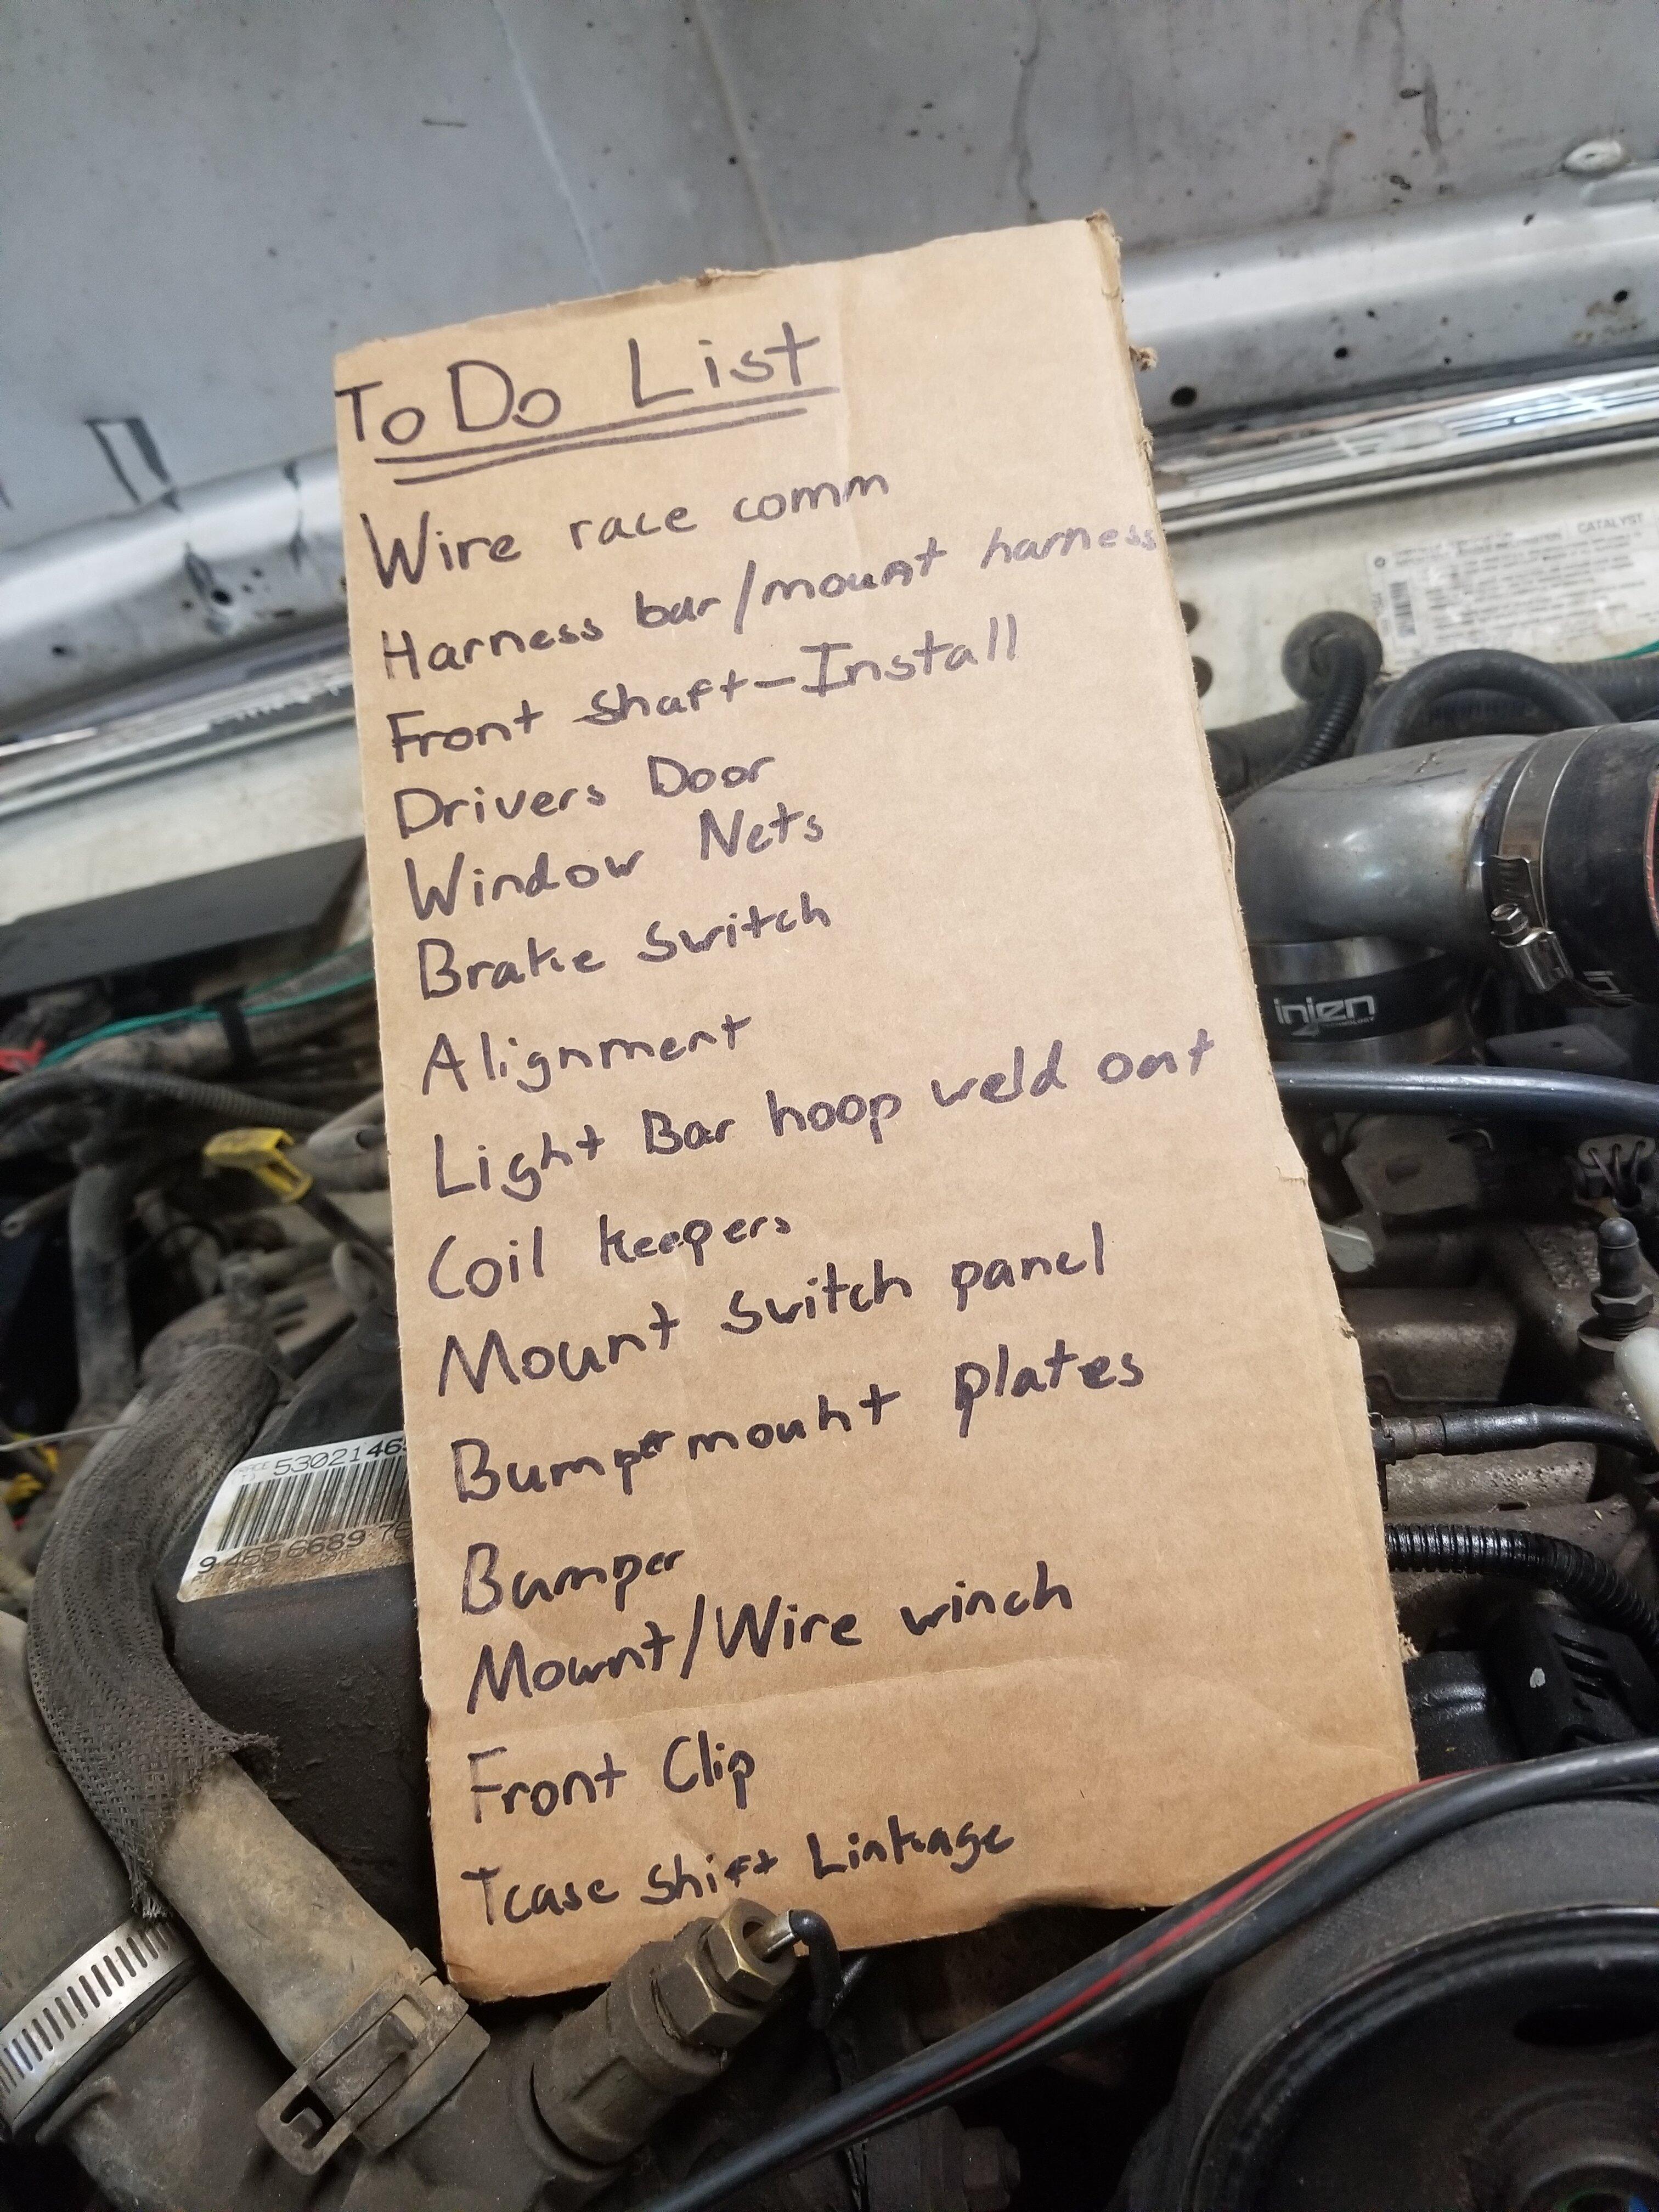 To Do List
Wire race comm
Harness bar/mount harness
Front shaft-Install
Drivers Door
Window Nets
Brake Switch
Alignment
Light Bar hoop weld out
Coil keepers
Mount Switch panel
Bumper mount plates
Bumper
Mount/Wire winch
Front Clip
Tcase Shift Linkage
CATALYST
injen
TECHNOLOGY
5302146
9 465 6689 76